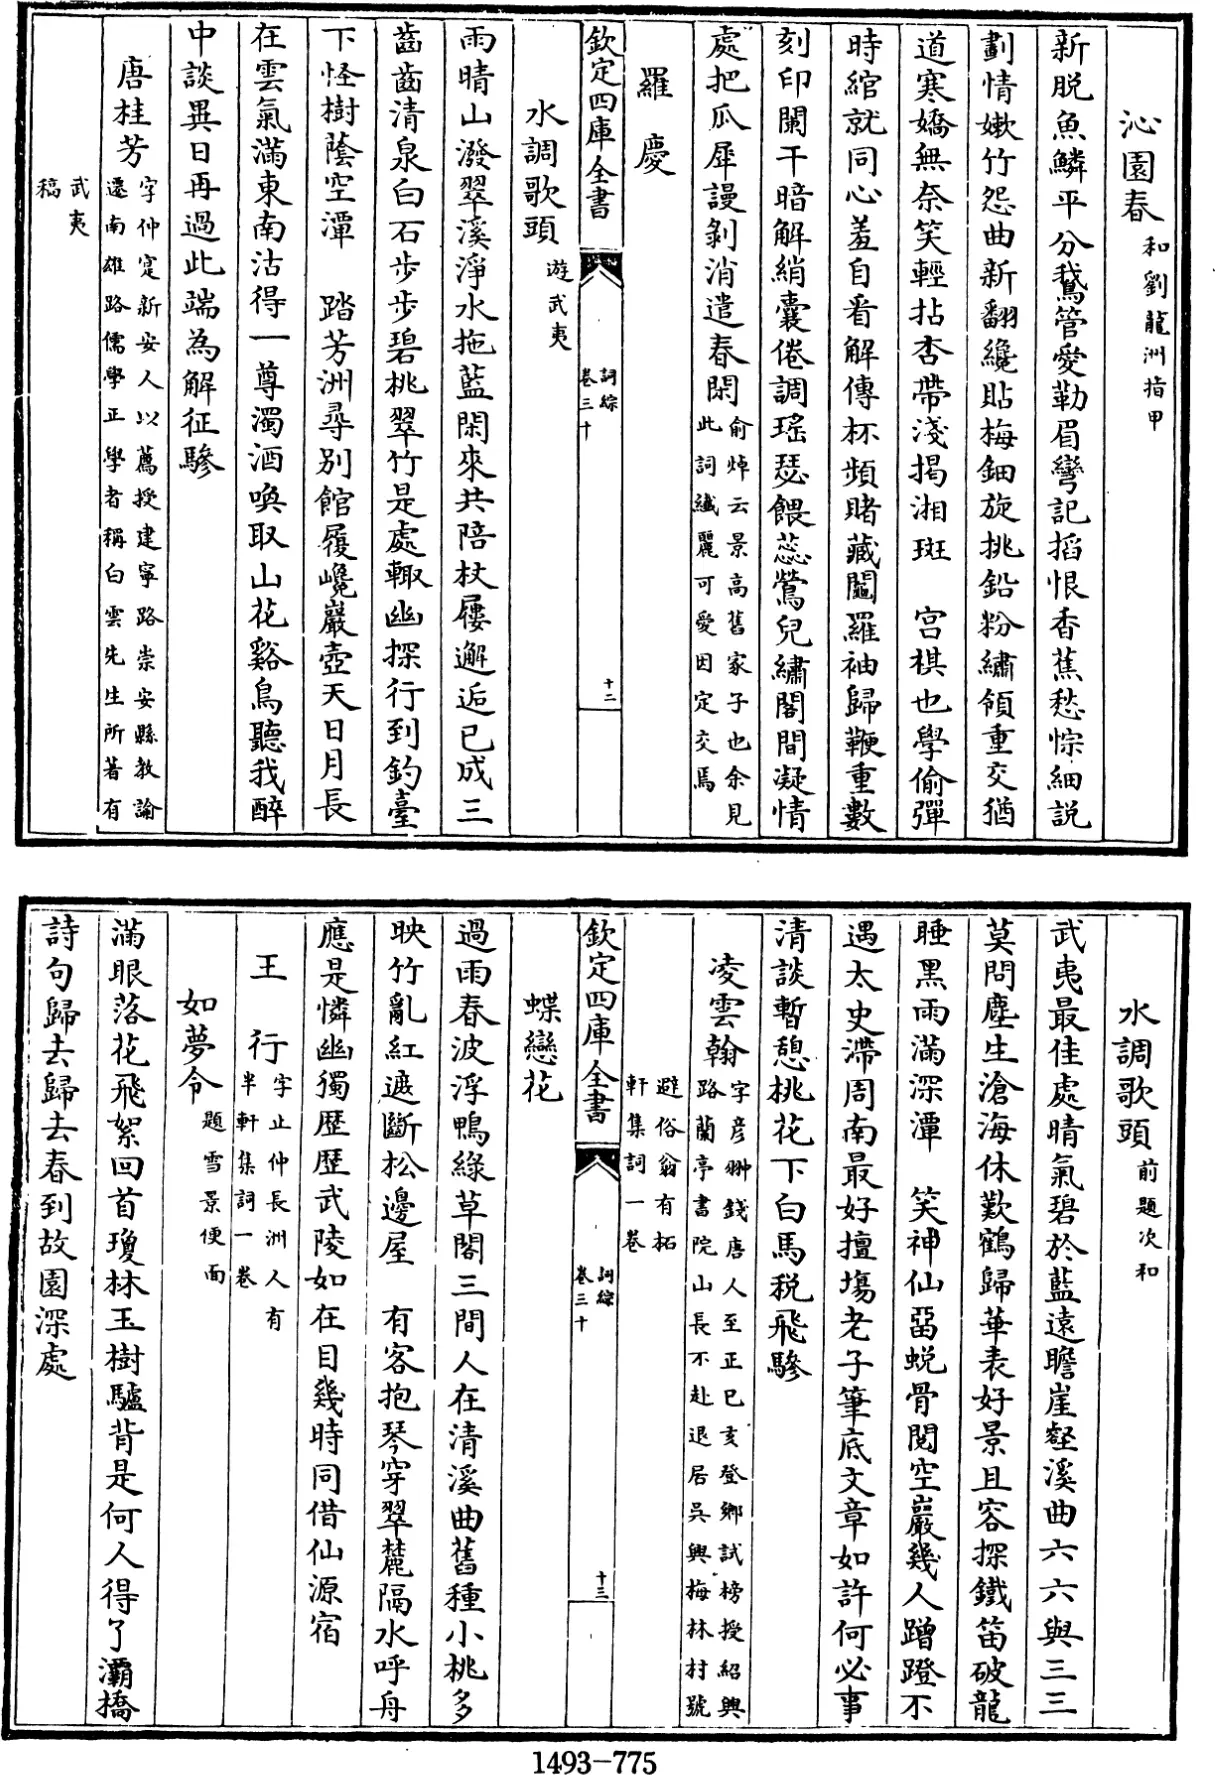 沁園春和劉龍洲指甲
新脱魚鱗平分鵞管愛勒眉彎記搯恨香蕉愁悰細説
劃情嫰竹怨曲新翻纔貼梅鈿旋挑鉛粉繡領重交猶
道寒嬌無奈笑輕拈杏帶淺搊湘斑　宫棋也學偷彈
時綰就同心羞自看解傳杯頻賭藏鬮羅袖歸鞭重數
刻印闌干暗解綃囊倦調瑤瑟餵蕊鶯兒繡閣間凝情
處把瓜犀謾剝消遣春閑俞焯云景高舊家子也余見
此詞纎麗可愛因定交焉
羅慶
欽定四庫全書
詞綜
卷三十
十二
水調歌頭遊武夷
雨晴山潑翠溪淨水拖藍閑來共陪杖屨邂逅已成三
齒齒清泉白石步步碧桃翠竹是處輙幽探行到釣臺
下怪樹蔭空潭　踏芳洲尋別館履巉巖壺天日月長
在雲氣滿東南沽得一尊濁酒喚取山花谿鳥聽我醉
中談異日再過此端為解征驂
唐桂芳字仲寔新安人以薦授建寧路崇安縣教諭
遷南雄路儒學正學者稱白雲先生所著有
武夷
稿
水調歌頭前題次和
武夷最佳處晴氣碧於藍遠瞻崖壑溪曲六六與三三
莫問塵生滄海休歎鶴歸華表好景且容探鐵笛破龍
睡黑雨滿深潭　笑神仙留蜕骨閟空巖幾人蹭蹬不
遇太史滯周南最好擅塲老子筆底文章如許何必事
清談暫憩桃花下白馬税飛驂
凌雲翰字彦翀錢唐人至正己亥登鄉試榜授紹興
路蘭亭書院山長不赴退居吳興梅林村號
避俗翁有柘
軒集詞一卷
欽定四庫全書
詞綜
卷三十
十三
蝶戀花
過雨春波浮鴨綠草閣三間人在清溪曲舊種小桃多
映竹亂紅遮斷松邊屋　有客抱琴穿翠麓隔水呼舟
應是憐幽獨歴歴武陵如在目幾時同借仙源宿
王行字止仲長洲人有
半軒集詞一卷
如夢令題雪景便面
滿眼落花飛絮回首瓊林玉樹驢背是何人得了灞橋
詩句歸去歸去春到故園深處
1493-775